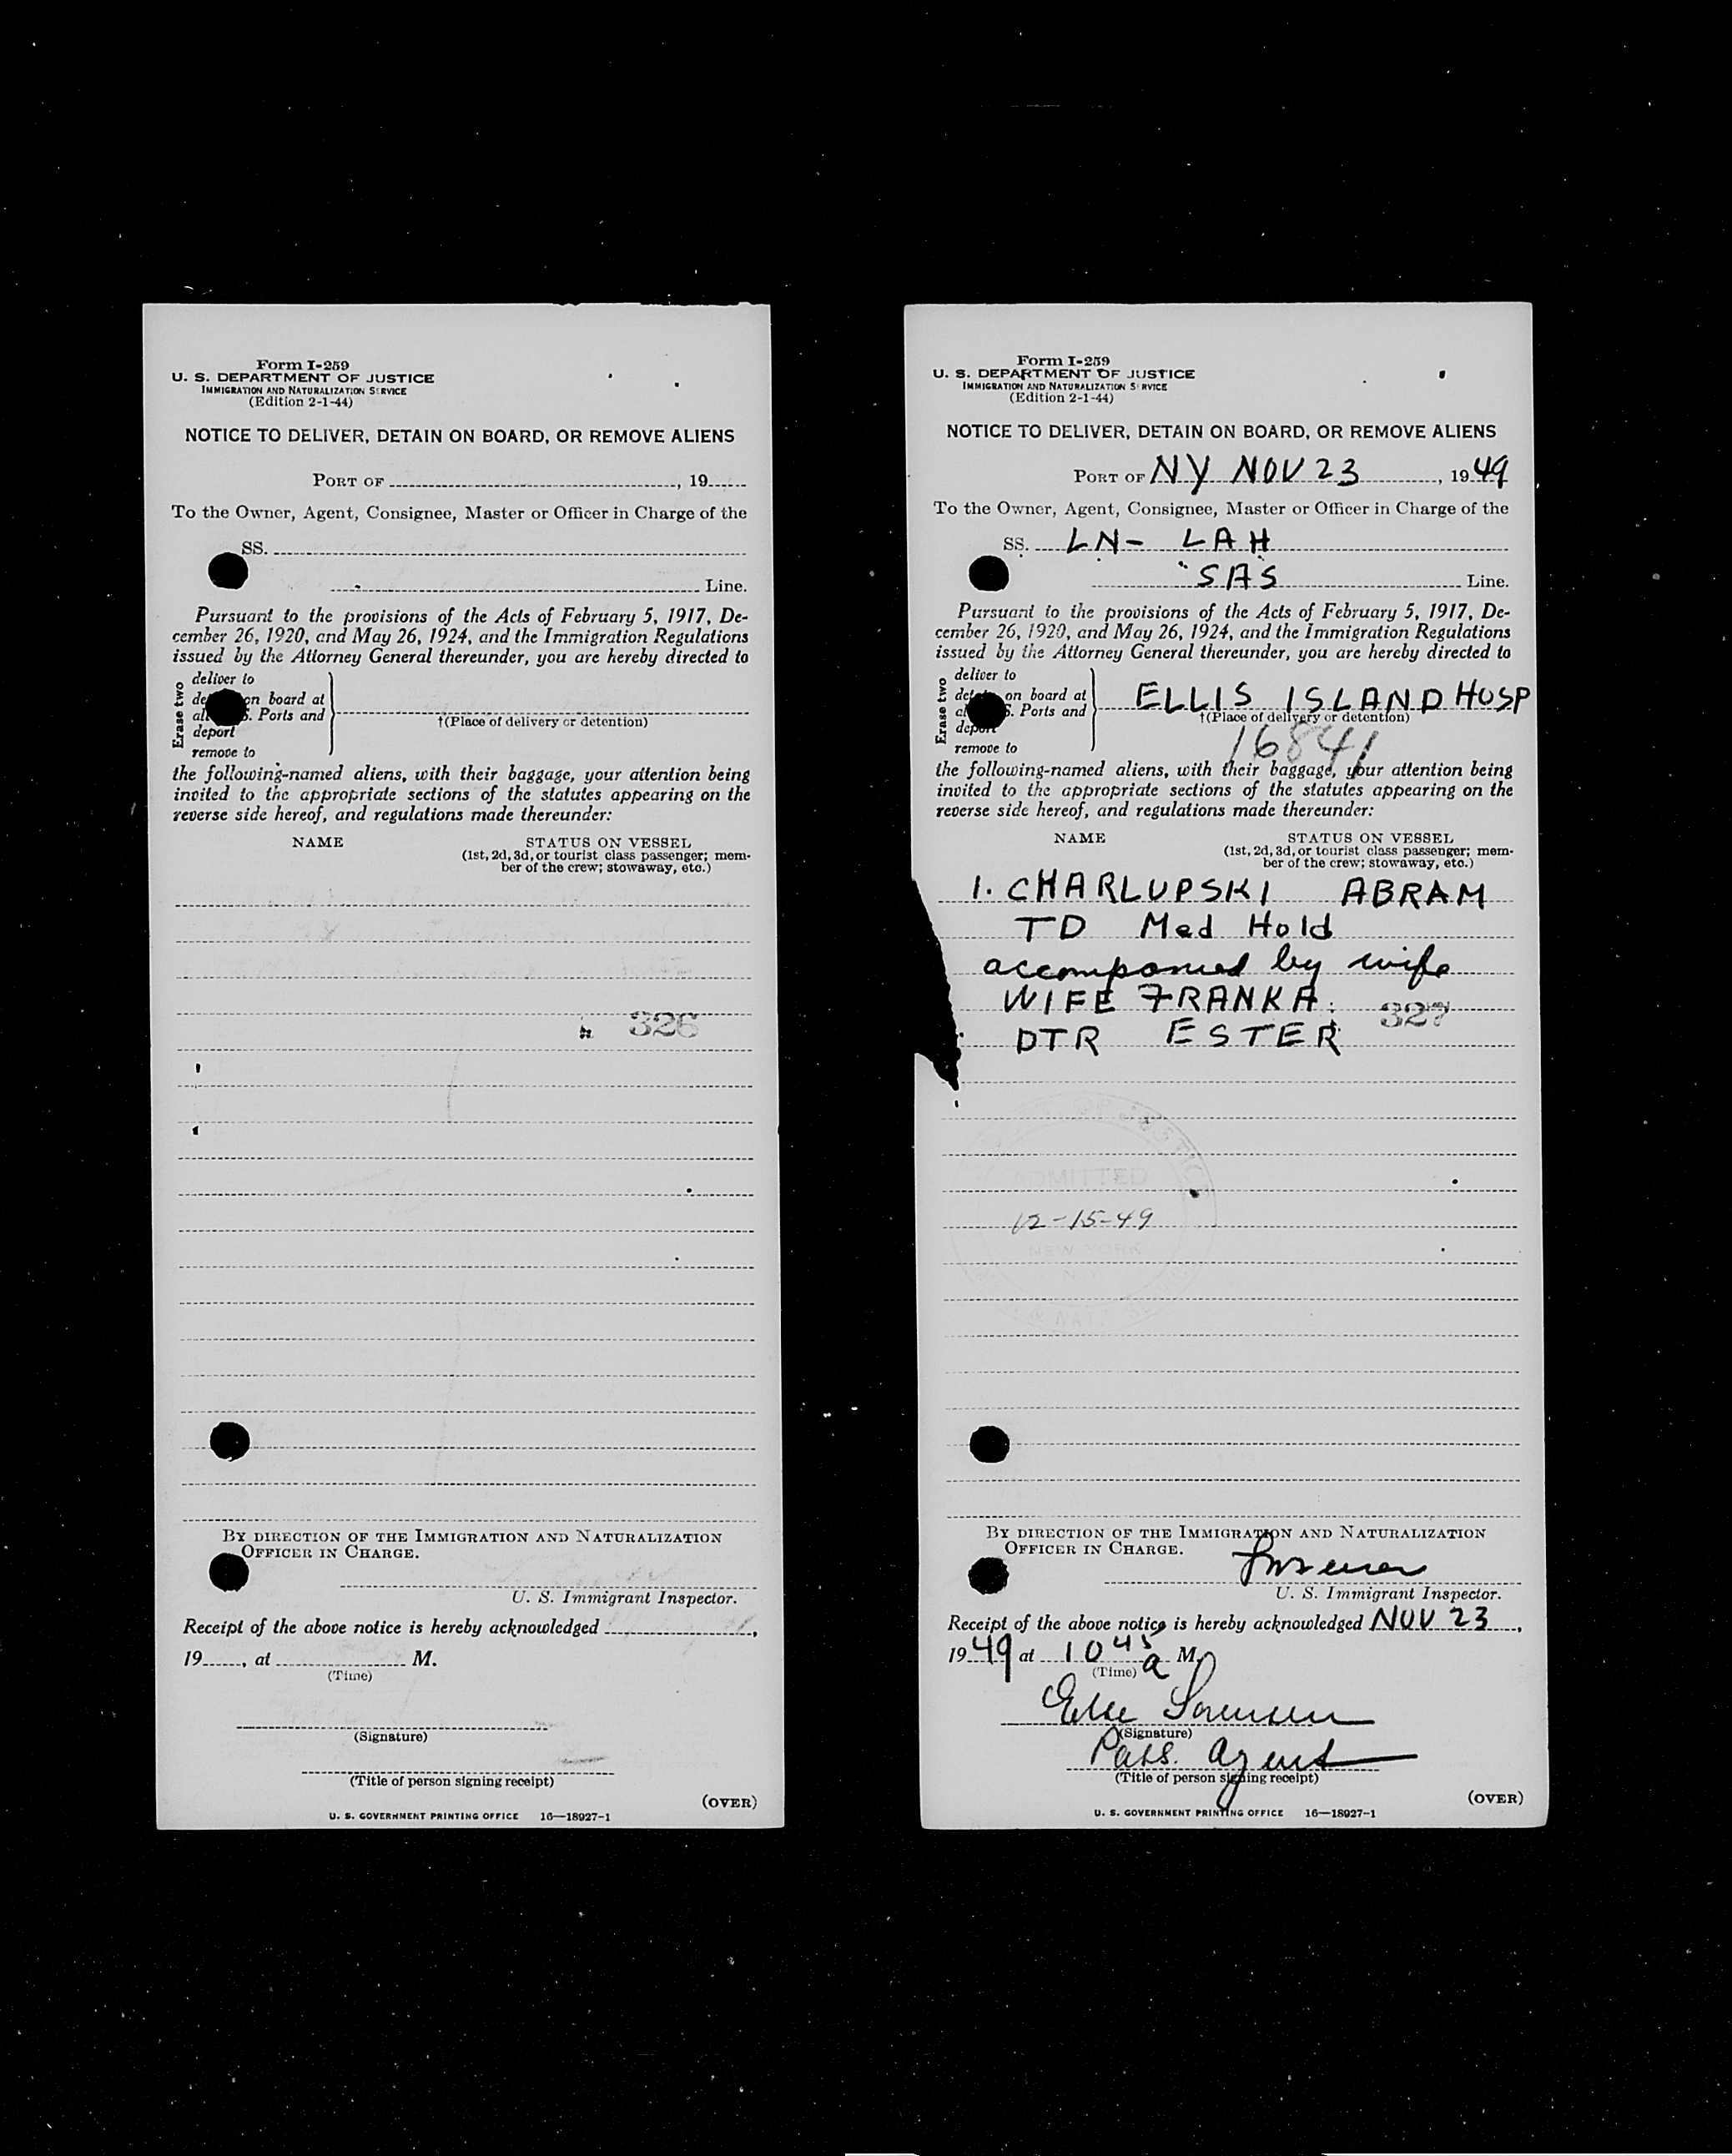 Form I-259
U. S. DEPARTMENT OF JUSTICE
IMMIGRATION AND NATURALIZATION SERVICE
(Edition 2-1-44)
NOTICE TO DELIVER, DETAIN ON BOARD, OR REMOVE ALIENS
PORT OF , 19
To the Owner, Agent, Consignee, Master or Officer in Charge of the
SS.
Line.
Pursuant to the provisions of the Acts of February 5, 1917, De-
cember 26, 1920, and May 26, 1924, and the Immigration Regulations
issued by the Attorney General thereunder, you are hereby directed to
Erase two
deliver to
on board at
Ports and
deport
remove to
†(Place of delivery or detention)
the following-named aliens, with their baggage, your attention being
invited to the appropriate sections of the statutes appearing on the
reverse side hereof, and regulations made thereunder:
NAME STATUS ON VESSEL
(1st, 2d, 3d, or tourist class passenger; mem-
ber of the crew; stowaway, etc.)
326
BY DIRECTION OF THE IMMIGRATION AND NATURALIZATION
OFFICER IN CHARGE.
U. S. Immigrant Inspector.
Receipt of the above notice is hereby acknowledged ,
19 , at M.
(Time)
(Signature)
(Title of person signing receipt)
(OVER)
U. S. GOVERNMENT PRINTING OFFICE 16—18927-1
Form I-259
U. S. DEPARTMENT OF JUSTICE
IMMIGRATION AND NATURALIZATION SERVICE
(Edition 2-1-44)
NOTICE TO DELIVER, DETAIN ON BOARD, OR REMOVE ALIENS
PORT OF NY NOV 23 , 19 49
To the Owner, Agent, Consignee, Master or Officer in Charge of the
SS. LN- LAH
SAS Line.
Pursuant to the provisions of the Acts of February 5, 1917, De-
cember 26, 1920, and May 26, 1924, and the Immigration Regulations
issued by the Attorney General thereunder, you are hereby directed to
Erase two
deliver to
on board at
Ports and
deport
remove to
ELLIS ISLAND HOSP
†(Place of delivery or detention)
16841
the following-named aliens, with their baggage, your attention being
invited to the appropriate sections of the statutes appearing on the
reverse side hereof, and regulations made thereunder:
NAME STATUS ON VESSEL
(1st, 2d, 3d, or tourist class passenger; mem-
ber of the crew; stowaway, etc.)
1. CHARLUPSKI ABRAM
TD Med Hold
accompanied by wife
WIFE FRANKA 327
DTR ESTER
OF JUSTICE
ADMITTED
12-15-49
NEW YORK
BY DIRECTION OF THE IMMIGRATION AND NATURALIZATION
OFFICER IN CHARGE.
U. S. Immigrant Inspector.
Receipt of the above notice is hereby acknowledged NOV 23 ,
19 49 at 10 45 a M.
(Time)
Else Sorensen
(Signature)
Pass. Agent
(Title of person signing receipt)
(OVER)
U. S. GOVERNMENT PRINTING OFFICE 16—18927-1